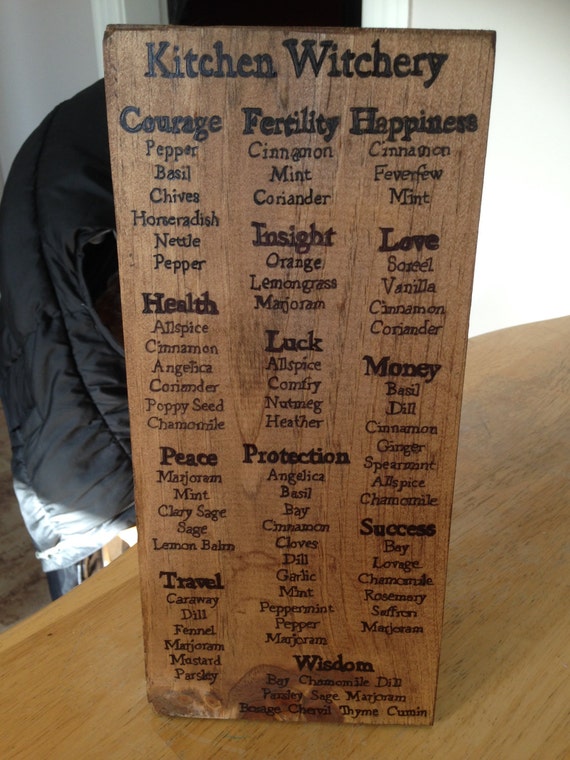 Kitchen Witchery
Courage
Pepper
Basil
Chives
Horseradish
Nettle
Pepper
Health
Allspice
Cinnamon
Angelica
Coriander
Poppy Seed
Chamomile
Peace
Marjoram
Mint
Clary Sage
Sage
Lemon Balm
Travel
Caraway
Dill
Fennel
Marjoram
Mustard
Parsley
Fertility
Cinnamon
Mint
Coriander
Insight
Orange
Lemongrass
Marjoram
Luck
Allspice
Comfry
Nutmeg
Heather
Protection
Angelica
Basil
Bay
Cinnamon
Cloves
Dill
Garlic
Mint
Peppermint
Pepper
Marjoram
Happiness
Cinnamon
Feverfew
Mint
Love
Sorrel
Vanilla
Cinnamon
Coriander
Money
Basil
Dill
Cinnamon
Ginger
Spearmint
Allspice
Chamomile
Success
Bay
Lovage
Chamomile
Rosemary
Saffron
Marjoram
Wisdom
Bay Chamomile Dill
Parsley Sage Marjoram
Borage Chervil Thyme Cumin